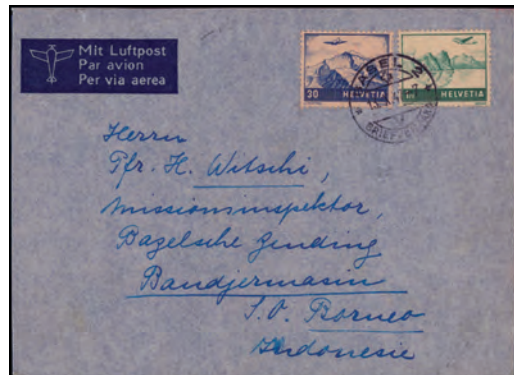 Mit Luftpost
Par avion
Per via aerea
30 HELVETIA
HELVETIA
BASEL 2
Herrn
Pfr. H. Witschi,
Missionsinspektor,
Bazelsche Zending
Bandjermasin
S.O. Borneo
Indonesie